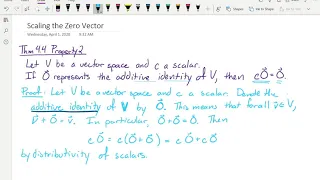 Scaling the Zero Vector
Wednesday, April 1, 2020 9:32 AM
Thm 4.4 Property 2
Let V be a vector space and c a scalar.
If 0⃗ represents the additive identity of V, then c0⃗ = 0⃗.
Proof: Let V be a vector space and c a scalar. Denote the
additive identity of V by 0⃗. This means that for all v⃗ ∈ V,
v⃗ + 0⃗ = v⃗. In particular, 0⃗ + 0⃗ = 0⃗. Then
c0⃗ = c(0⃗ + 0⃗) = c0⃗ + c0⃗
by distributivity of scalars.